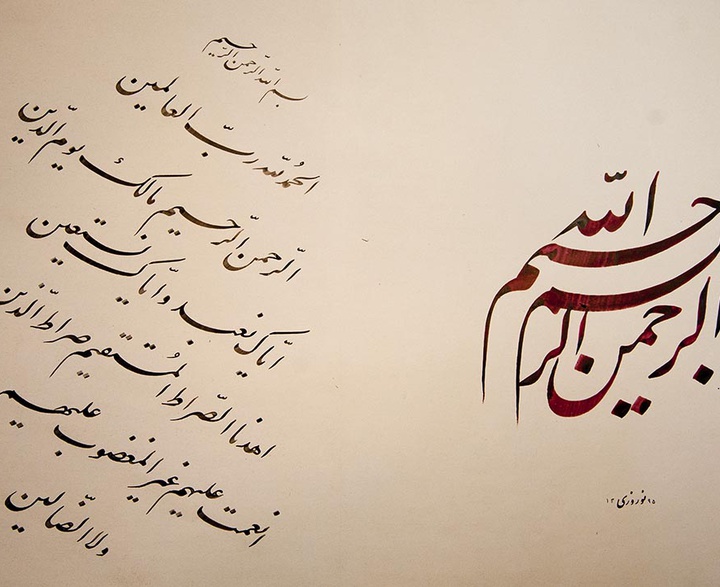 بسم الله الرحمن الرحیم
الحمدُ لله ربّ العالمین
الرّحمن الرّحیم مالک یوم الدّین
ایّاک نعبد و ایّاک نستعین
اهدنا الصّراط المُستقیم صراط الّذین
انعمت علیهم غیر المغضوب علیهم
ولا الضّالین
بسم الله الرحمن الرحیم
نوروزی